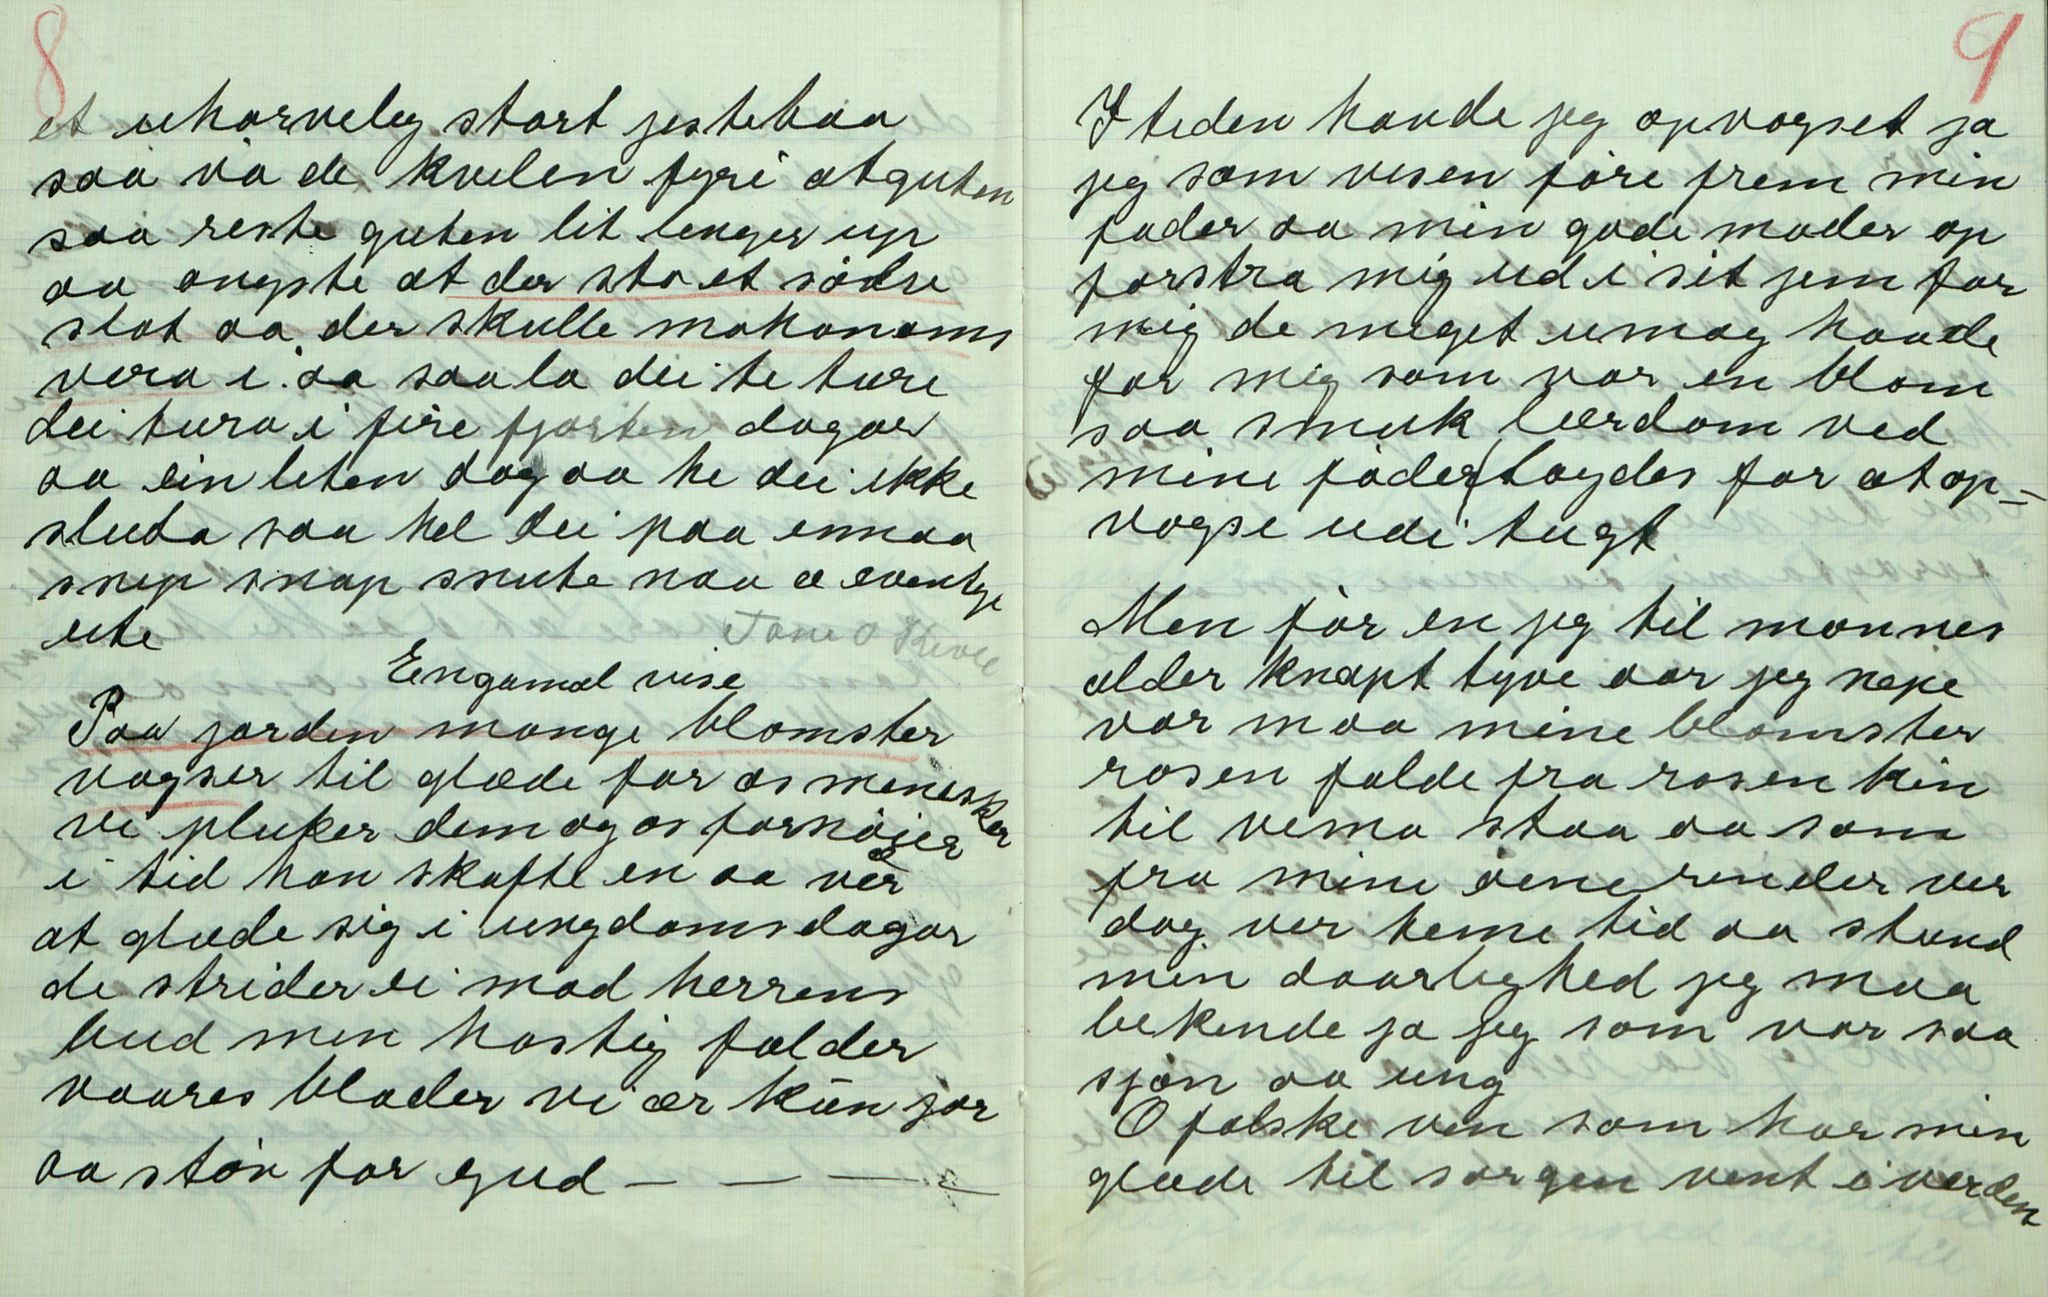 8
et uhorveleg stort jestebaa
saa va de kvelen fyri at guten
saa reste guten lit lenger up
aa ongste at der sto et sodse
slot aa der skulle mokonoms
vera i. aa saa la dei te ture
dei tura i fire fjorten dagar
aa ein leten dag aa he dei ikke
sluta saa hel dei paa ennaa
snip snap snute naa e eventy
ute
Engamal vise
Paa jorden mange blomster
vogser til glæde for os menesker
vi pluker dem og os fornøjer
i tid han skafte en aa ver
at glæde sig i ungdomsdagar
de strider ei mod herrens
bud men hastig falder
vaares blader vi ær kun jor
aa støv for gud — — — —
9
I teden havde jeg opvogset ja
jeg som visen føre frem min
fader aa min gode moder op
forstra mig ud i sit jem for
mig de meget umag havde
for mig som var en blom
saa smuk lærdom ved
mine føder togdes for at op-
vogse udi tugt
Men før en jeg til mannes
alder knapt tyve aar jeg nepe
var maa mine blomster
rosen falde fra rosen kin
til vema staa aa som
fra mine øiene render ver
dag ver teme tid aa stund
min daarlighed jeg maa
bekende ja jeg som var saa
sjøn aa ung
O falske ven som har min
glæde til sorgen vent i verden